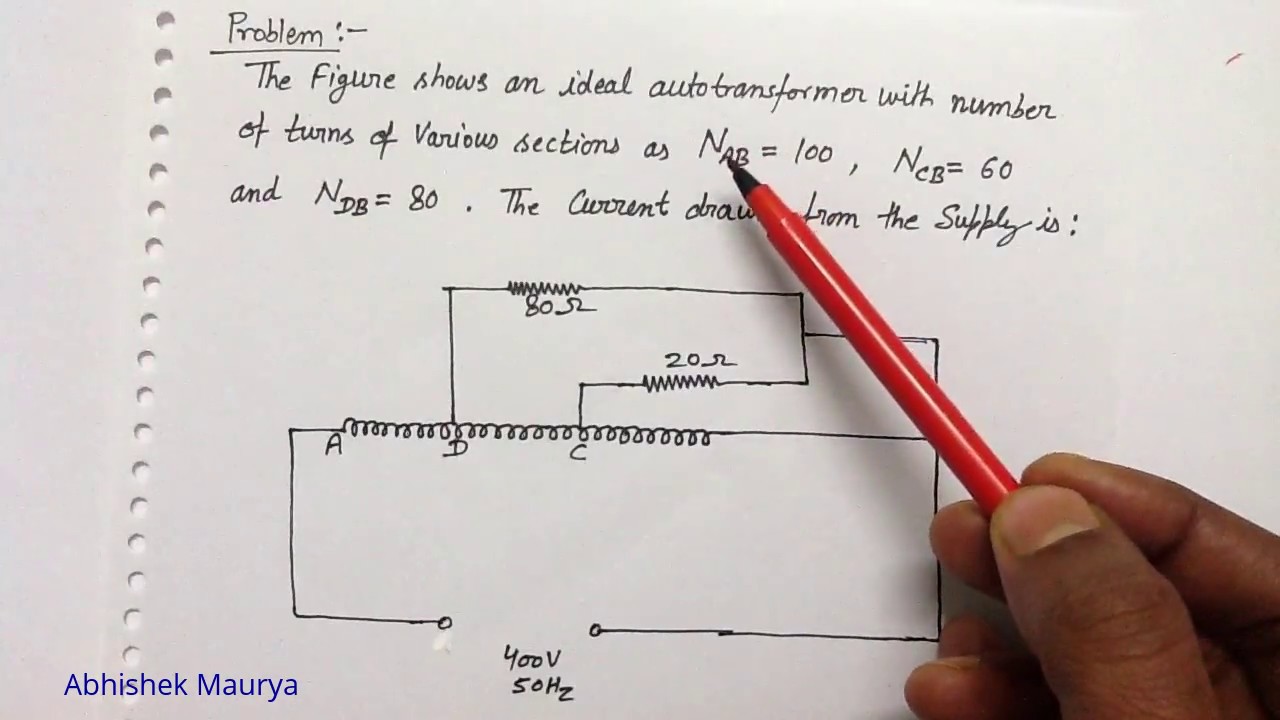 Problem :-
The Figure shows an ideal autotransformer with number
of turns of Various sections as N_AB = 100 , N_CB = 60
and N_DB = 80 . The Current from the Supply is :
80Ω
20Ω
A D C
400V
50Hz
Abhishek Maurya